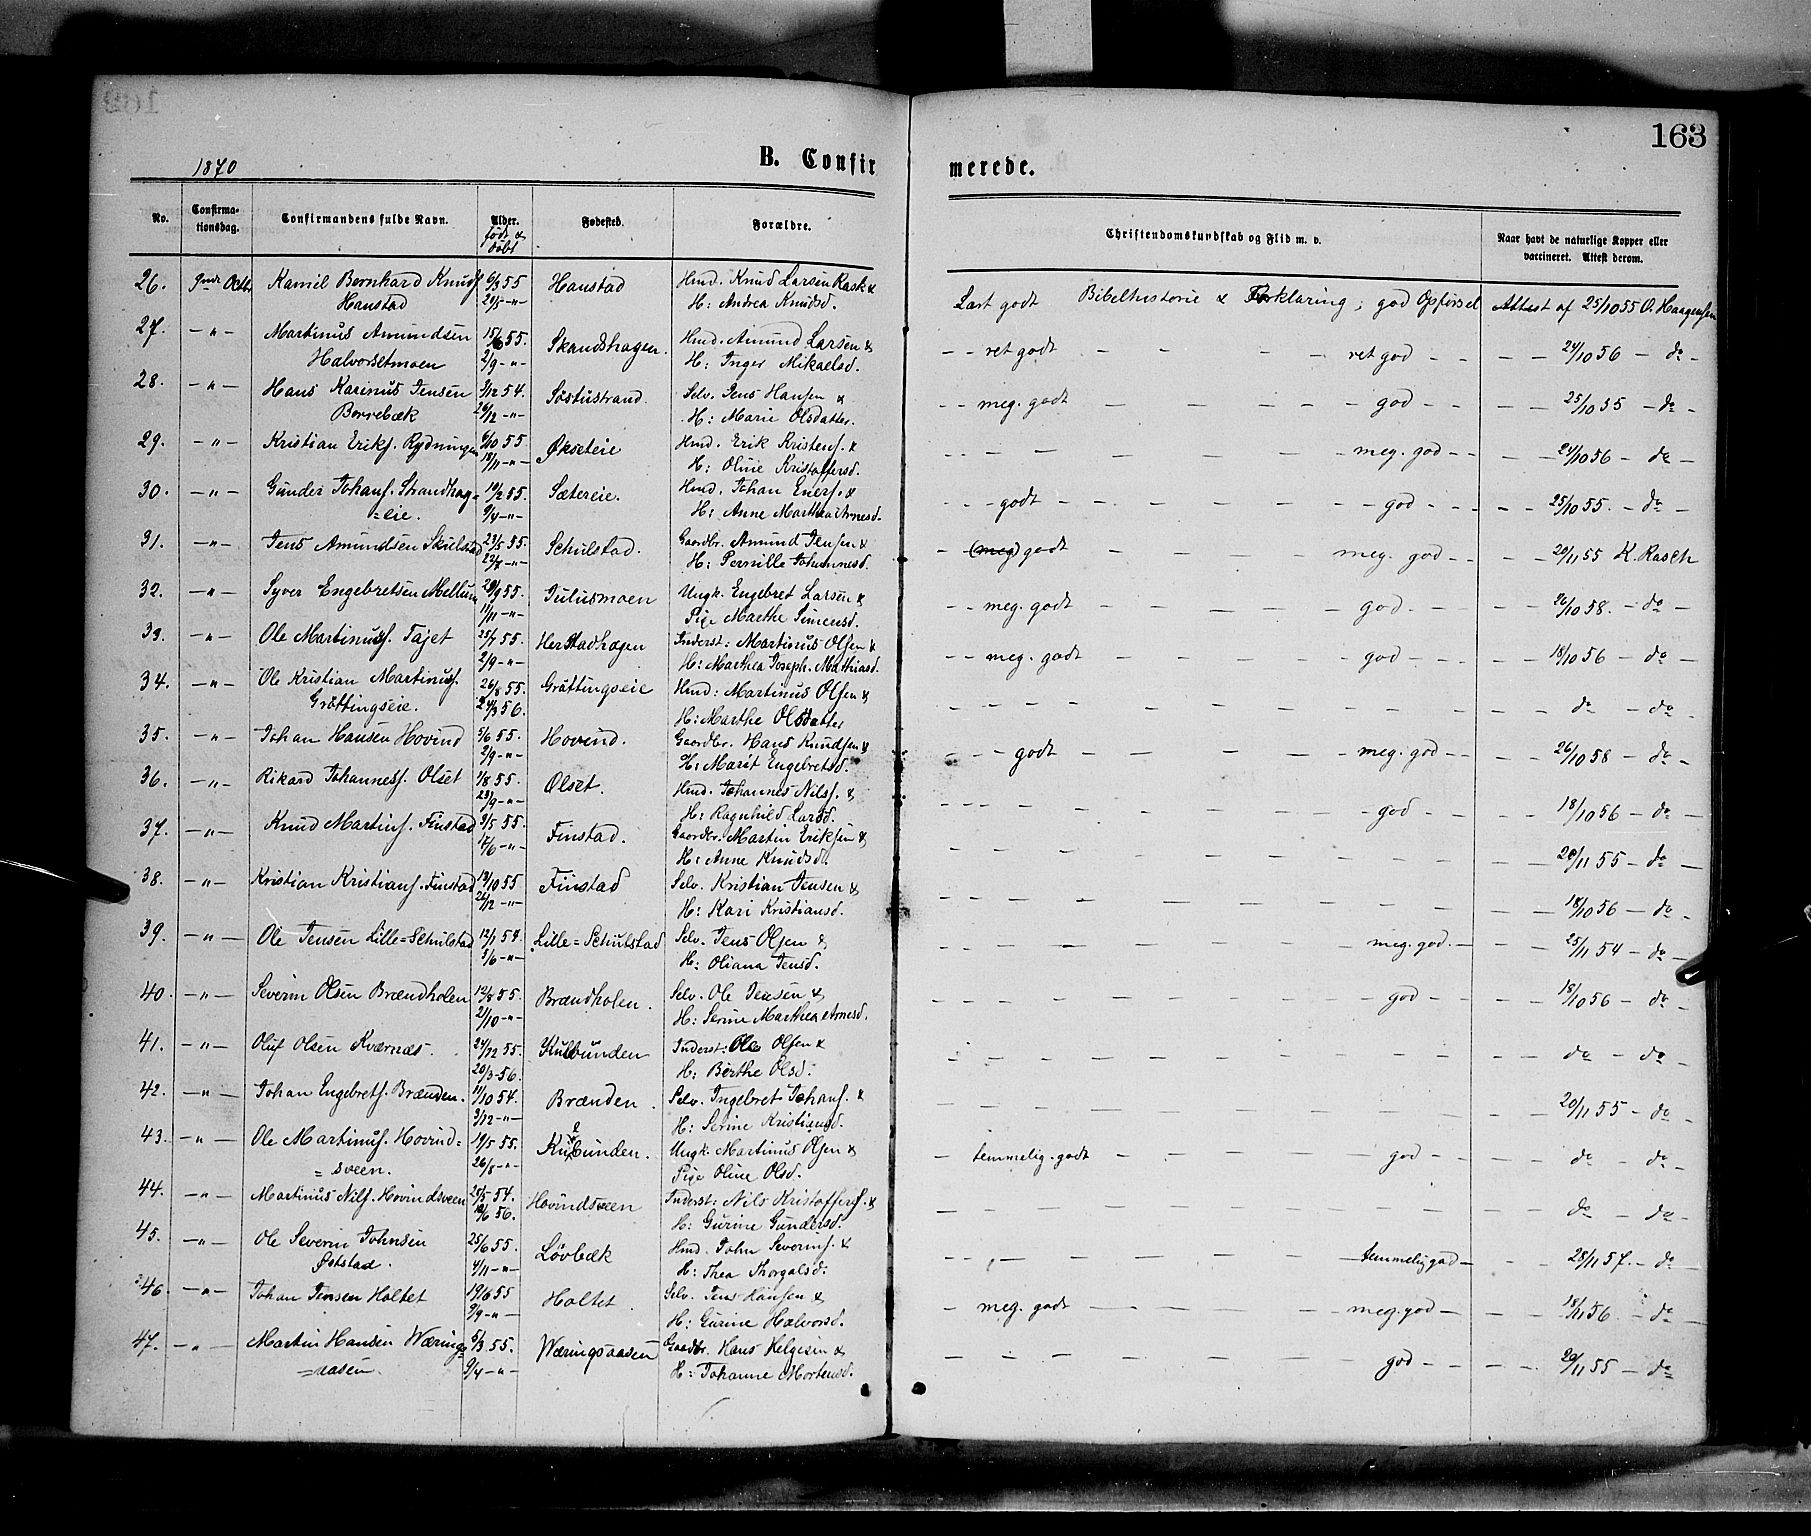 163
1870
B. Confir
merede.
No.
Confirma-
tionsdag.
Confirmandens fulde Navn.
Alder.
født &
døbt
Fødested.
Forældre.
Christendomskundskab og Flid m. v.
Naar havt de naturlige Kopper eller
vaccineret. Attest derom.
26. 9nde Octbr Kamil Bernhard Knuds. 6/3 55 Hanstad Hmd. Knud Larsen Rask &
Hanstad 29/5 -"- H: Andrea Knudsd.
Læst godt Bibelhistorie & Forklaring; god Opførsel Attest af 25/10 55 O. Haagensen
27. -"- Martinus Amundsen 15/6 55. Skandshagen. Hmd. Amund Larsen &
Halvorsetmoen 2/9 -"- H: Inger Mikaelsd.
- - ret godt - - - - ret god - - - - 24/10 56 - do -
28. -"- Hans Karinus Jensen 3/12 54. Søstustrand. Selv. Jens Hansen &
Borrebæk 26/12 -"- H: Marie Olsdatter.
- - meg. godt - - - - god - - - - 25/10 55 - do -
29. -"- Kristian Eriks. Rydningen 6/10 55 Økseteie Hmd. Erik Kristens. &
18/11 -"- H: Oline Kristoffersd.
- - - - - - - meg. god - - - - 24/10 56 - do -
30. -"- Gunder Johans. Strandhag- 19/2 55. Sætereie. Hmd. Johan Eners. &
=eie. 9/4 -"- H: Anne Marthea Arnesd.
- - godt - - - - god - - - - 25/10 55. - do -
31. -"- Jens Amundsen Skulstad 23/5 55. Schulstad. Gaardbr. Amund Jensen &
22/8 -"- H: Pernille Johannesd.
- (meg) godt - - - - meg. god - - - - 20/11 55 K. Rasch
32. -"- Syver Engebretsen Mellum 28/9 55. Julusmoen Ungk. Engebret Larsen &
11/11 -"- Pige Marthe Simensd.
- - meg. godt - - - - god - - - - 26/10 58. - do -
33. -"- Ole Martinus. Tajet 25/7 55. Herstadhagen Inderst: Martinus Olsen &
2/9 -"- H: Marthea Joseph. Mathiasd.
- - meg. godt - - - - god - - - - 18/10 56 - do -
34. -"- Ole Kristian Martinus. 26/8 55. Grøttingseie Hmd: Martinus Olsen &
Grøttingseie. 24/3 56. H: Marthe Olsdatter
- - - - - - - - - - do - do -
35. -"- Johan Hansen Hovind 3/6 55. Hovind. Gaardbr. Hans Knudsen &
2/9 -"- H: Marit Engebretsd.
- - godt - - - - meg. god - - - 26/10 58 - do -
36. -"- Rikard Johanness. Olset 1/8 55. Olset. Hmd. Johannes Nilss. &
23/9 -"- H: Ragnhild Larsd.
- - - - - - - god - - - - 18/10 56 - do -
37. -"- Knud Martins. Finstad 3/5 55. Finstad. Gaardbr. Martin Eriksen &
17/6 -"- H: Anne Knudsd.
- - - - - - - - - - 20/11 55 - do -
38. -"- Kristian Kristians. Finstad 13/10 55 Finstad Selv. Kristian Jensen &
26/12 -"- H: Kari Kristiansd.
- - - - - - - - - - 18/10 56 - do -
39. -"- Ole Jensen Lille=Schulstad 12/1 54. Lille=Schulstad Selv. Jens Olsen &
5/6 -"- H: Oliana Jensd.
- - - - - - - meg. god. - - - 25/11 54 - do -
40. -"- Severin Olsen Brændholen 12/8 55. Brændholen. Selv. Ole Jensen &
21/10 -"- H: Serine Marthea Arnesd.
- - - - - - - god - - - - 18/10 56 - do -
41. -"- Oluf Olsen Kværnæs. 24/12 55. Kulbunden Inderst: Ole Olsen &
20/3 -56. H: Berthe Olsd.
- - - - - - - - - - do - do -
42. -"- Johan Engebrets. Brænden. 11/10 54. Brænden. Selv. Ingebret Johans. &
3/12 -"- H: Serine Kristiansd.
- - - - - - - - - - 20/11 55 - do -
43. -"- Ole Martinus. Hovind= 19/5 55. Kulbunden. Ungk. Martinus Olsen &
=sveen. 26/8 -"- Pige Oline Olsd.
- temmelig. godt - - - - god - - - - do - do -
44. -"- Martinus Nils. Hovindsveen 29/5 54. Hovindsveen Inderst: Nils Kristoffers. &
18/6 56. H: Gurine Gundersd.
- - - - - - - - - - do - do -
45. -"- Ole Severin Johnsen 25/6 55. Løvbæk Hmd. John Severins. &
Øststad. 4/11 -"- H: Thea Thorgalsd.
- - - temmelig god - - - 28/11 57. - do -
46. -"- Johan Jensen Holtet 19/6 55 Holtet. Selv. Jens Hansen &
9/9 -"- H: Gurine Halvorsd.
- meg. godt - - - - meg. god - - - 18/11 56 - do -
47. -"- Martin Hansen Wærings= 5/3 55. Wæringsaasen Gaardbr. Hans Helgesen &
=aasen. 9/4 -"- H: Johanne Mortensd.
- - - - - - - god - - - - 20/11 55 - do -